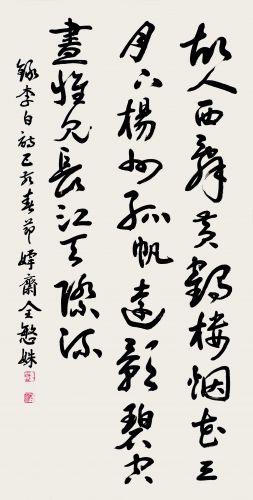 故人西辭黃鶴樓烟花三
月下楊州孤帆遠影碧空
盡惟見長江天際流
錄李白詩己亥春節齋全慜姝